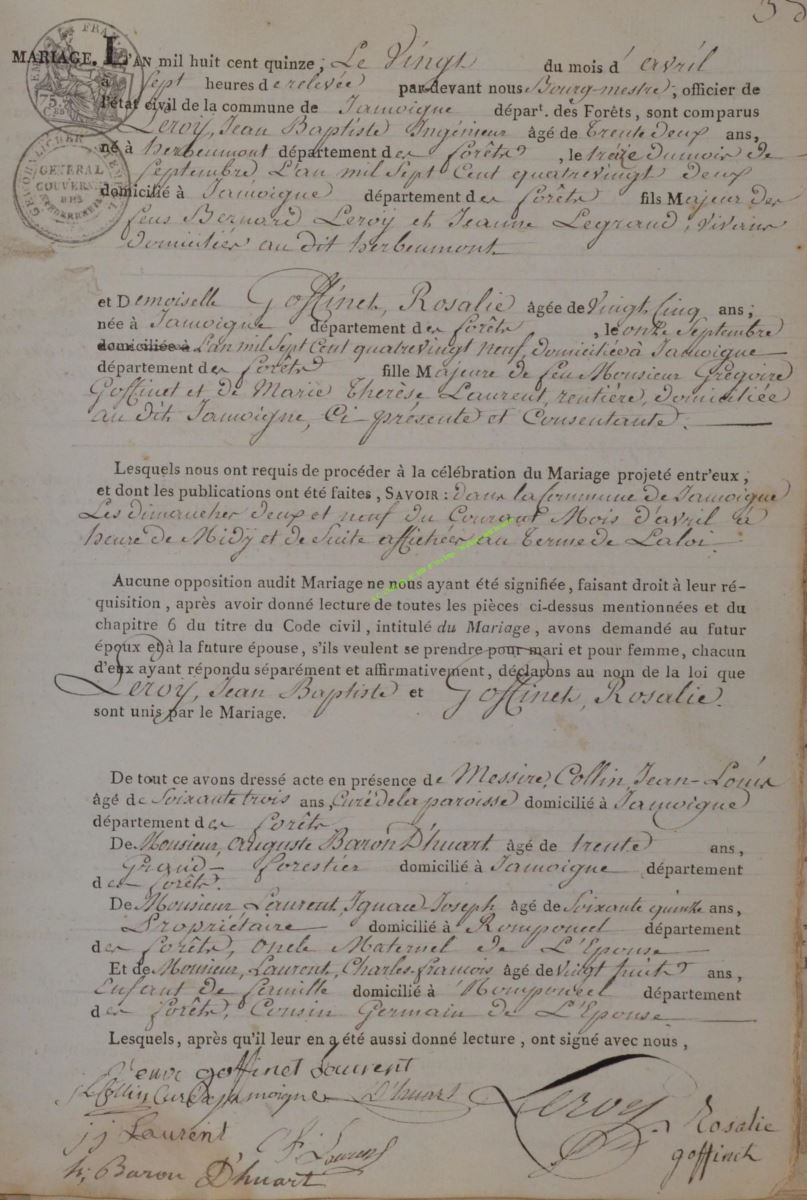 MARIAGE. L'AN mil huit cent quinze, Le Vingt du mois d'avril
à Sept heures de relevée par-devant nous Bourg-mestre, officier de
l'état civil de la commune de Jamoigne départ. des Forêts, sont comparus
Leroy, Jean Baptiste Ingénieur âgé de Trente deux ans,
né à herbeumont département des forêts, le treize du mois de
Septembre L'an mil Sept Cent quatrevingt deux
domicilié à Jamoigne département des forêts fils Majeur des
feus Bernard Leroy et Jeanne Legrand, vivans
domiciliés au dit herbeumont.
et Demoiselle Goffinet, Rosalie âgée de Vingt Cinq ans;
née à Jamoigne département des forêts, le onze Septembre
domiciliée à L'an mil Sept Cent quatrevingt neuf, domiciliée à Jamoigne
département des forêts fille Majeure de feu Monsieur Grégoire
Goffinet et de Marie Therèse Laurent, rentière, domiciliée
au dit Jamoigne, Ci-présente et Consentante.
Lesquels nous ont requis de procéder à la célébration du Mariage projeté entr'eux,
et dont les publications ont été faites, SAVOIR: dans la Commune de Jamoigne
Les dimanches deux et neuf du Courant Mois d'avril à
heure de Midy et de Suite affichées au terme de La loi.
Aucune opposition audit Mariage ne nous ayant été signifiée, faisant droit à leur ré-
quisition, après avoir donné lecture de toutes les pièces ci-dessus mentionnées et du
chapitre 6 du titre du Code civil, intitulé du Mariage, avons demandé au futur
époux et à la future épouse, s'ils veulent se prendre pour mari et pour femme, chacun
d'eux ayant répondu séparément et affirmativement, déclarons au nom de la loi que
Leroy, Jean Baptiste et Goffinet, Rosalie.
sont unis par le Mariage.
De tout ce avons dressé acte en présence de Messire, Collin, Jean-Louis
âgé de Soixante trois ans, Curé de la paroisse domicilié à Jamoigne
département des forêts
De Monsieur, Auguste Baron D'huart âgé de trente ans,
Grand-forestier domicilié à Jamoigne département
des forêts.
De Monsieur Laurent, Ignace Joseph, âgé de Soixante quinze ans,
Propriétaire domicilié à Romponcel département
des forêts, Oncle Maternel de L'Epouse
Et de Monsieur, Laurent, Charles-francois âgé de Vingt huit ans,
Enfant de famille domicilié à Romponcel département
des forêts, Cousin Germain de L'Epouse
Lesquels, après qu'il leur en a été aussi donné lecture, ont signé avec nous,
veuve goffinet Laurent
Collin Curé de jamoigne D'huart Leroy Rosalie
j j Laurent C f Laurent goffinet
Baron D'huart
GENERAL
GOUVERNE